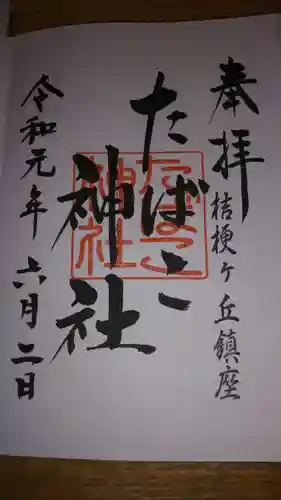 奉拝
桔梗ヶ丘鎮座
たばこ
神社
たばこ
神社
令和元年六月二日